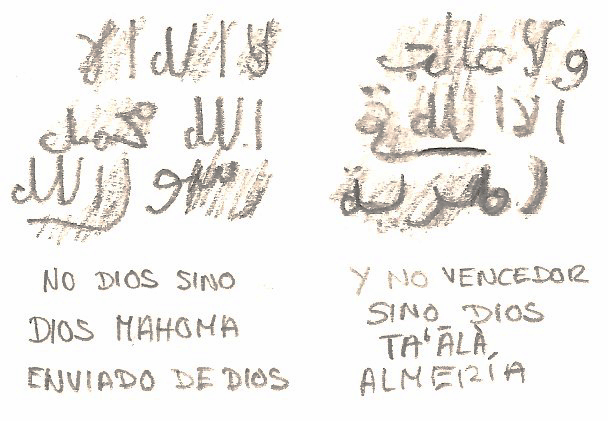 لا اله الا
الله محمد
رسول الله
NO DIOS SINO
DIOS MAHOMA
ENVIADO DE DIOS
ولا غالب
الا الله
المرية
Y NO VENCEDOR
SINO DIOS
TA'ĀLÀ,
ALMERÍA